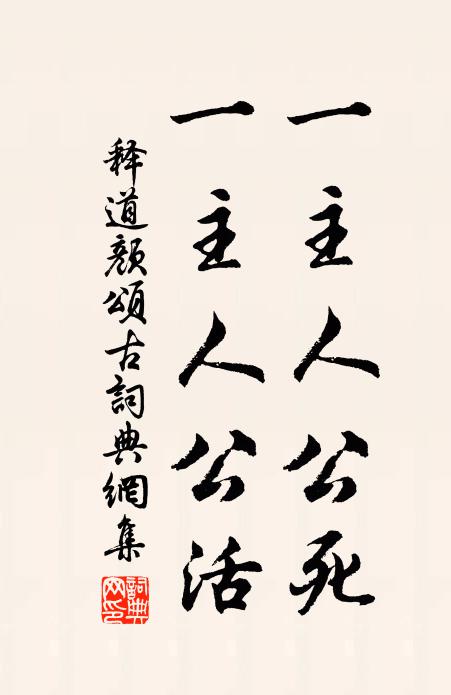 一主人公死
一主人公活
释道颜頌古詞典網集
詞典網印